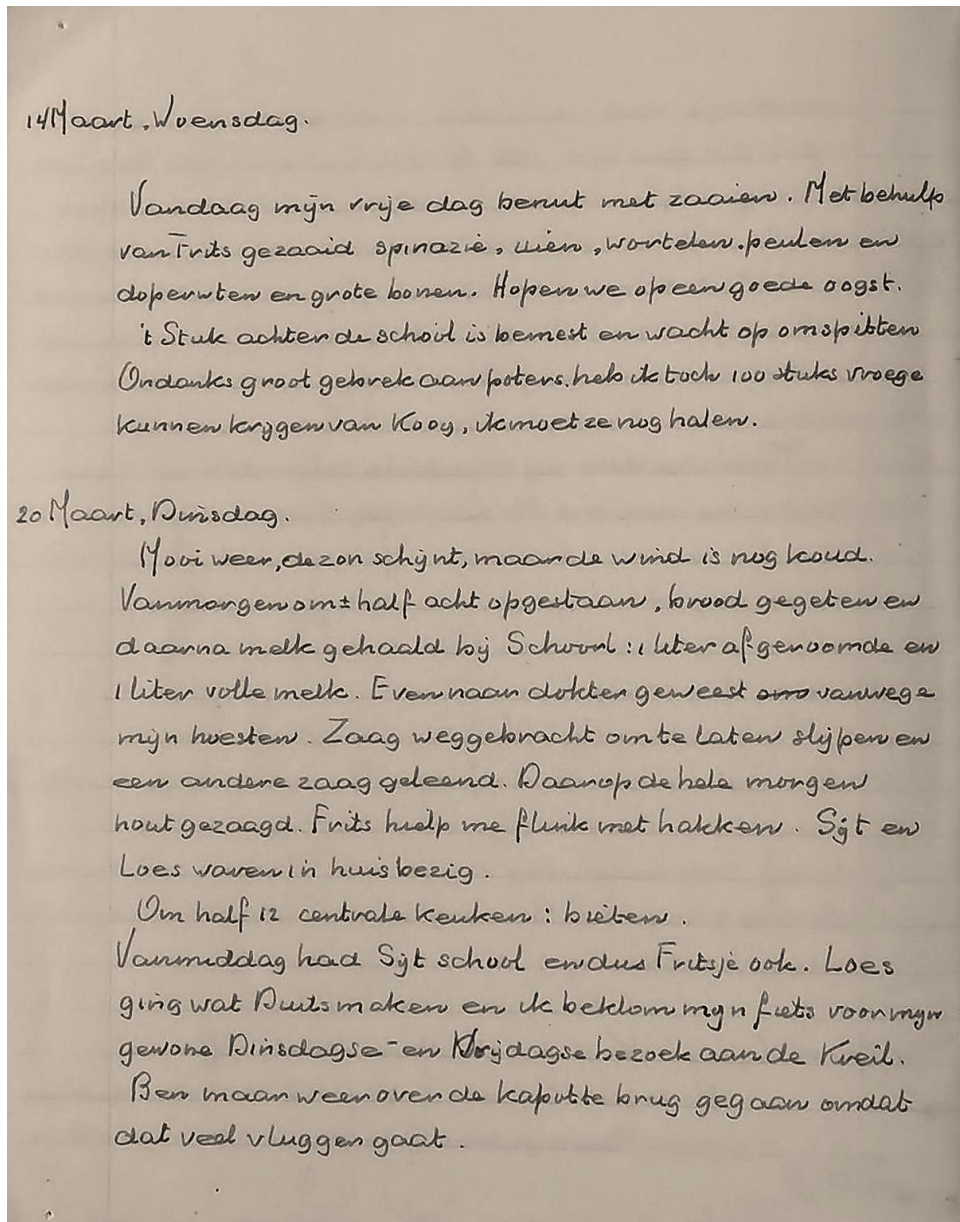 14 Maart, Woensdag.
Vandaag mijn vrije dag benut met zaaien. Met behulp
van Frits gezaaid spinazie, uien, wortelen. peulen en
doperwten en grote bonen. Hopen we op een goede oogst.
't Stuk achter de school is bemest en wacht op omspitten
Ondanks groot gebrek aan poters. heb ik toch 100 stuks vroege
kunnen krijgen van Kooy, ik moet ze nog halen.
20 Maart, Dinsdag.
Mooi weer, de zon schijnt, maar de wind is nog koud.
Vanmorgen om ± half acht opgestaan, brood gegeten en
daarna melk gehaald bij Schoorl : 1 liter afgeroomde en
1 liter volle melk. Even naar dokter geweest om vanwege
mijn hoesten. Zaag weggebracht om te laten slijpen en
een andere zaag geleend. Daarop de hele morgen
hout gezaagd. Frits hielp me flink met hakken. Sijt en
Loes waren in huis bezig.
Om half 12 centrale keuken : bieten.
Vanmiddag had Sijt school en dus Fritsje ook. Loes
ging wat Duits maken en ik beklom mijn fiets voor mijn
gewone Dinsdagse- en Vrijdagse bezoek aan de Kreil.
Ben maar weer over de kapotte brug gegaan omdat
dat veel vlugger gaat.